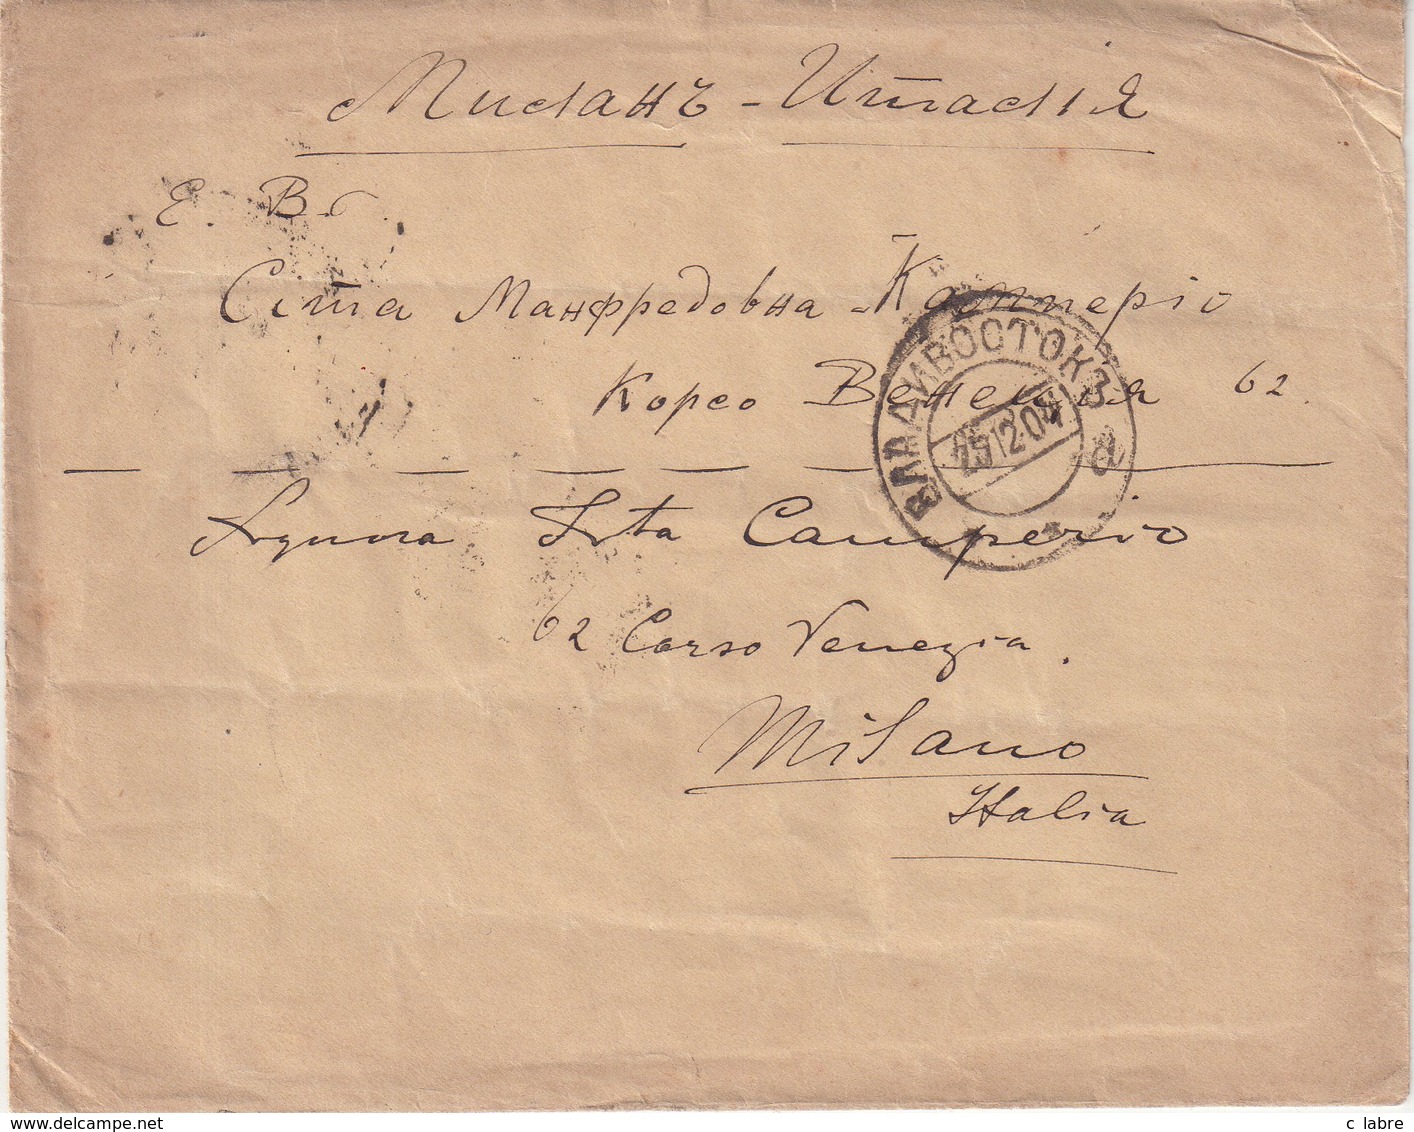 Миланъ - Италія
Е. В. г.
Сіта Манфредовна Камперіо
Корсо Венеція 62.
ВЛАДИВОСТОК 3 а
25 12 04
Signora Sita Camperio
62 Corso Venezia.
Milano
Italia
www.delcampe.net
c labre